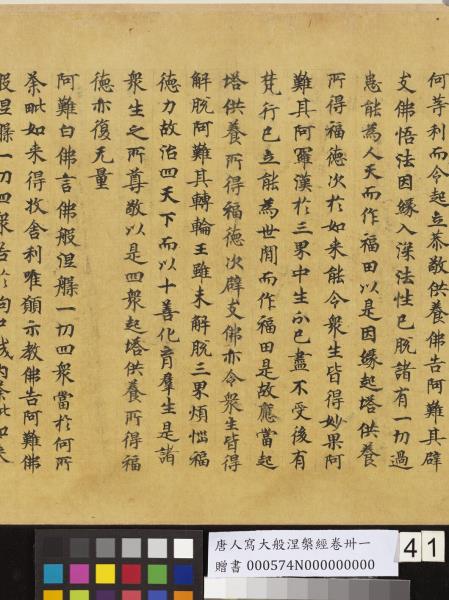 何等利而令起立恭敬供養佛告阿難其辟
支佛悟法因緣入深法性已脫諸有一切過
患能為人天而作福田以是因緣起塔供養
所得福德次於如來能令衆生皆得妙果阿
難其阿羅漢於三界中生分已盡不受後有
梵行已立能為世間而作福田是故應當起
塔供養所得福德次辟支佛亦令衆生皆得
解脫阿難其轉輪王雖未解脫三界煩惱福
德力故治四天下而以十善化育羣生是諸
衆生之所尊敬以是四衆起塔供養所得福
德亦復无量
阿難白佛言佛般涅槃一切四衆當於何所
荼毗如來得收舍利唯願示教佛告阿難佛
般涅槃一切四衆若於拘尸城內荼毗如來
唐人寫大般涅槃經卷卅一
贈書 000574N000000000
41